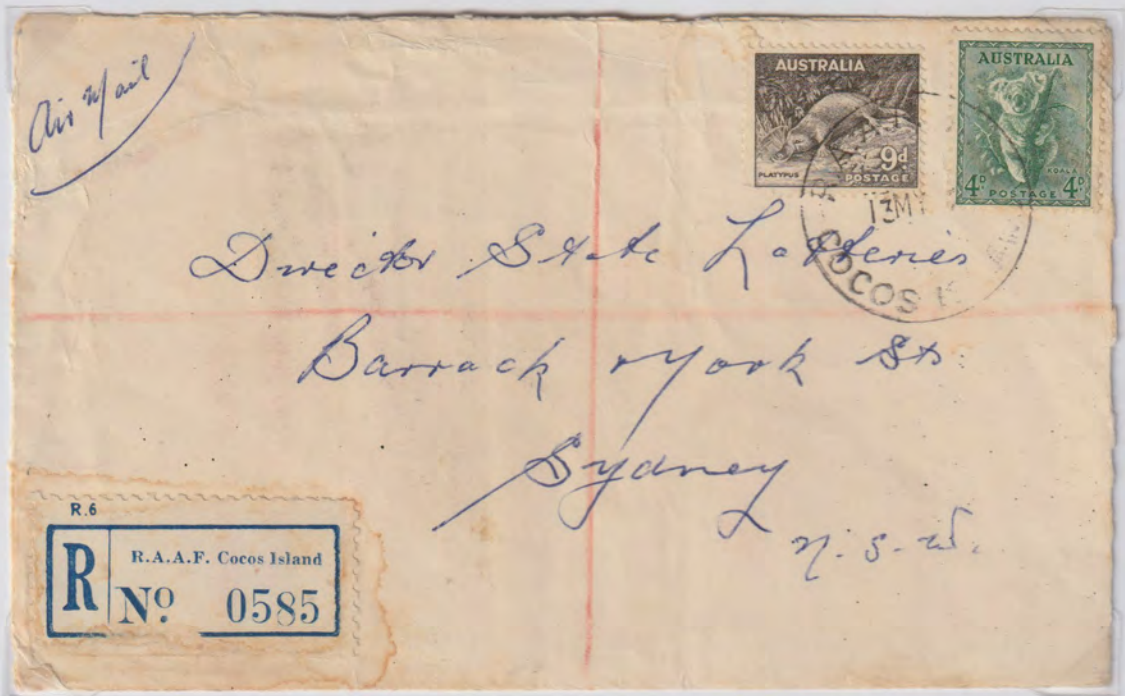 Air Mail
AUSTRALIA
PLATYPUS
9d
POSTAGE
AUSTRALIA
KOALA
4D POSTAGE 4D
13M
COCOS
Director State Lotteries
Barrack & York Sts.
Sydney
N.S.W.
R.6
R R.A.A.F. Cocos Island
No 0585